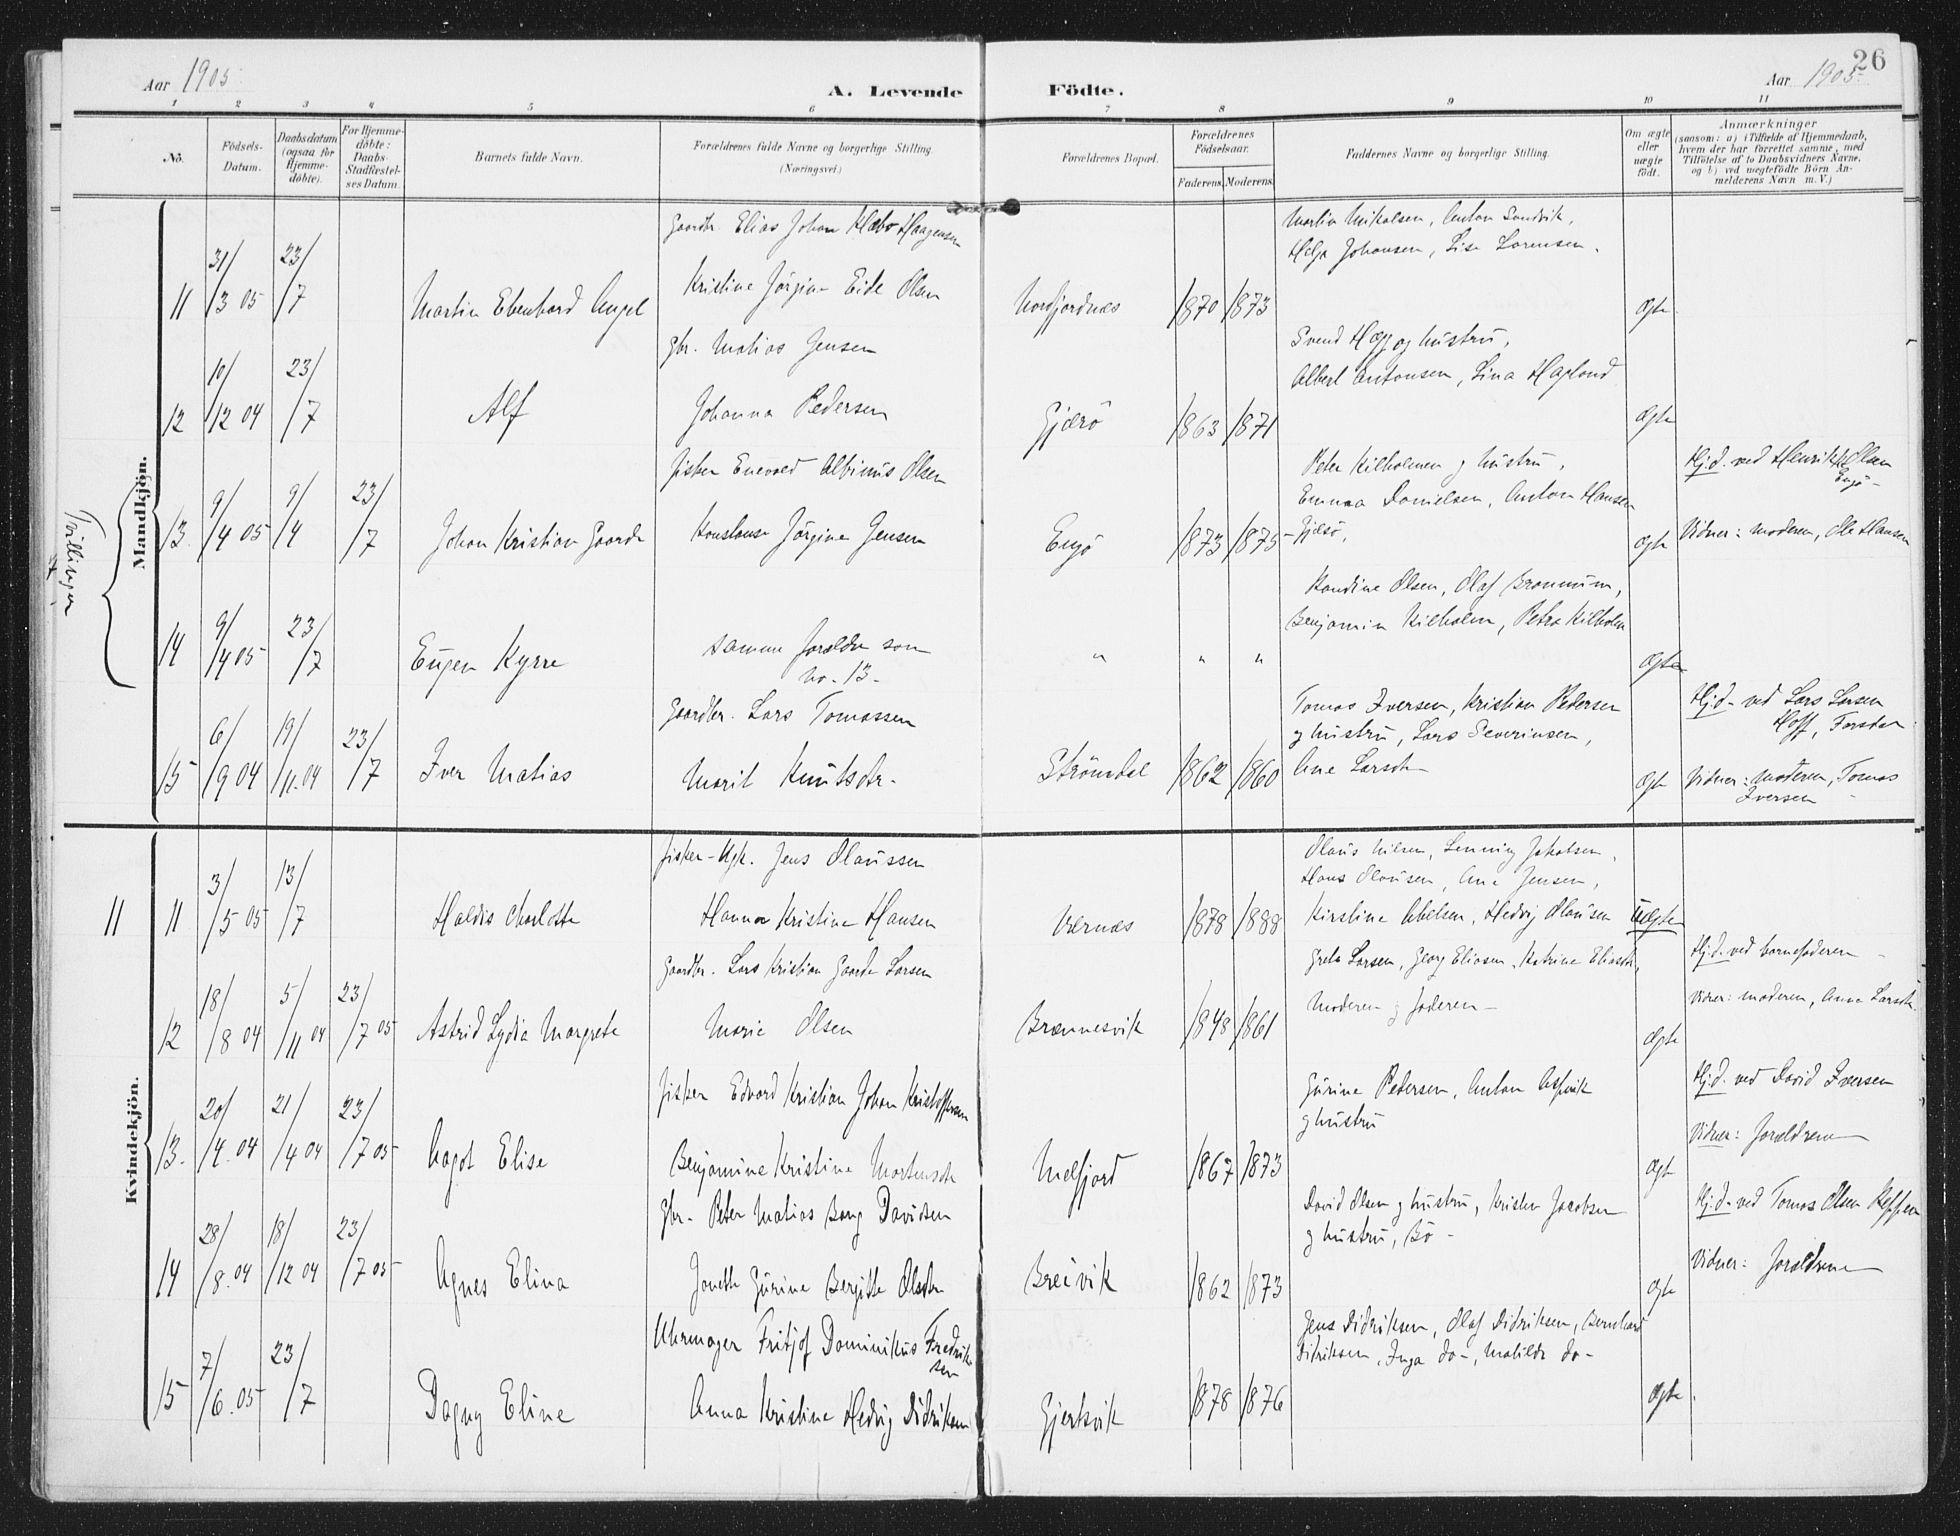 26
Aar 1905
A. Levende Födte.
Aar 1905
1 2 3 4 5 6 7 8 9 10 11
No.
Födsels-Datum.
Daabsdatum (ogsaa for Hjemme-døbte).
For Hjemme-døbte: Daabs-Stadfæstel-ses Datum.
Barnets fulde Navn.
Forældrenes fulde Navne og borgerlige Stilling.
(Næringsvei.)
Forældrenes Bopæl.
Forældrenes Födselsaar.
Faderens. Moderens.
Faddernes Navne og borgerlige Stilling.
Om ægte eller uægte födt.
Anmærkninger
(saasom: a) i Tilfælde af Hjemmedaab,
hvem der har forrettet samme, med
Tilføielse af to Daabsvidners Navne,
og b) ved uægtefödte Börn An-
melderens Navn m. V.)
Mandkjön.
Gaardbr. Elias Johan Hæbo Haagensen
Martin Mikalsen, Anton Sandvik,
Helga Johansen, Lise Lorensen.
11 31/3 05 23/7 Martin Edenhard Angel
Kristine Jörgine Eide Olsen
Nordfjordnæs 1870 1873 ægte
Gbr. Matias Jensen
Svend Hæg og hustru,
Albert Antonsen, Lina Haglund
12 10/12 04 23/7 Alf Johanna Pedersen Gjærö 1863 1871 ægte
Tvillinger
Fisker Enevold Albinus Olsen
Peter Kilholmen og hustru,
Emma Danielsen, Anton Hansen
Gjærö,
Hj.d. ved Henrik Olsen
Engö-
13. 9/4 05 9/4 23/7 Johan Kristian Gaarde
Konstanse Jörgine Jensen Engö 1873 1875 ægte
Vidner: moderen, Ole Hansen
Kandine Olsen, Olaf Brommum,
Benjamin Kilholm, Petra Kilholm
14 9/4 05 23/7 Eugen Kyrre samme forældre som
no. 13-
" " " ægte
Gaardbr. Lars Tomassen
Tomas Iversen, Kristian Pedersen
og hustru, Lars Severinsen,
Ane Larsdtr
Hj.d- ved Lars Larsen
Hoff, Forsdal
15 6/9 04 19/11.04 23/7 Iver Matias Marit Knutsdtr- Strömdal 1862 1860 ægte
Vidner: moderen, Tomas
Iversen
Kvindekjön.
Fisker-Ugk. Jens Olaussen
Olaus Nilsen, Lenning Jakobsen,
Hans Olausen, Ane Jensen,
Kirstine Abelsen, Hedvig Olausen
11 11 3/5 05 13/7 Haldis Charlotte Hanna Kristine Hansen Værnæs 1878 1888 Uægte
Gaardbr. Lars Kristian Gaarde Larsen
Grete Larsen, Georg Eliasen, Katrine Eliasdtr,
Moderen og faderen-
Hj.d. ved barnefaderen-
Vidner: moderen, Anna Larsdtr
12 18/8 04 5/11 04 23/7 05 Astrid Lydia Margrete Marie Olsen Brænnesvik 1848 1861 ægte
Fisker Edvard Kristian Johan Kristoffersen
Gurine Petersen, Anton Aspvik
og hustru
Hj.d. ved David Iversen
Vidner: forældrene
13. 20/4.04 21/4 04 23/7 05 Aagot Elise Benjamine Kristine Mortensdtr Melfjord 1867 1873 ægte
Gbr- Peter Matias Bang Davidsen
David Olsen og hustru, Kristen Jacobsen
og hustru, Bö-
Hj.d- ved Tomas Olsen Reppen
Vidner: forældrene
14 28/8.04 18/12 04 23/7 05 Agnes Elina Jonette Gurine Bergitte Olsdtr Breivik 1862 1873 ægte
Uhrmager Fritjof Dominikus Fredrik-
sen
Jens Didriksen, Olaf Didriksen, Bernhard
Didriksen, Inga do-, Matilde do-
15 7/6.05 23/7 Dagny Eline Anna Kristine Hedvig Didriksen Gjertsvik 1878 1876 ægte